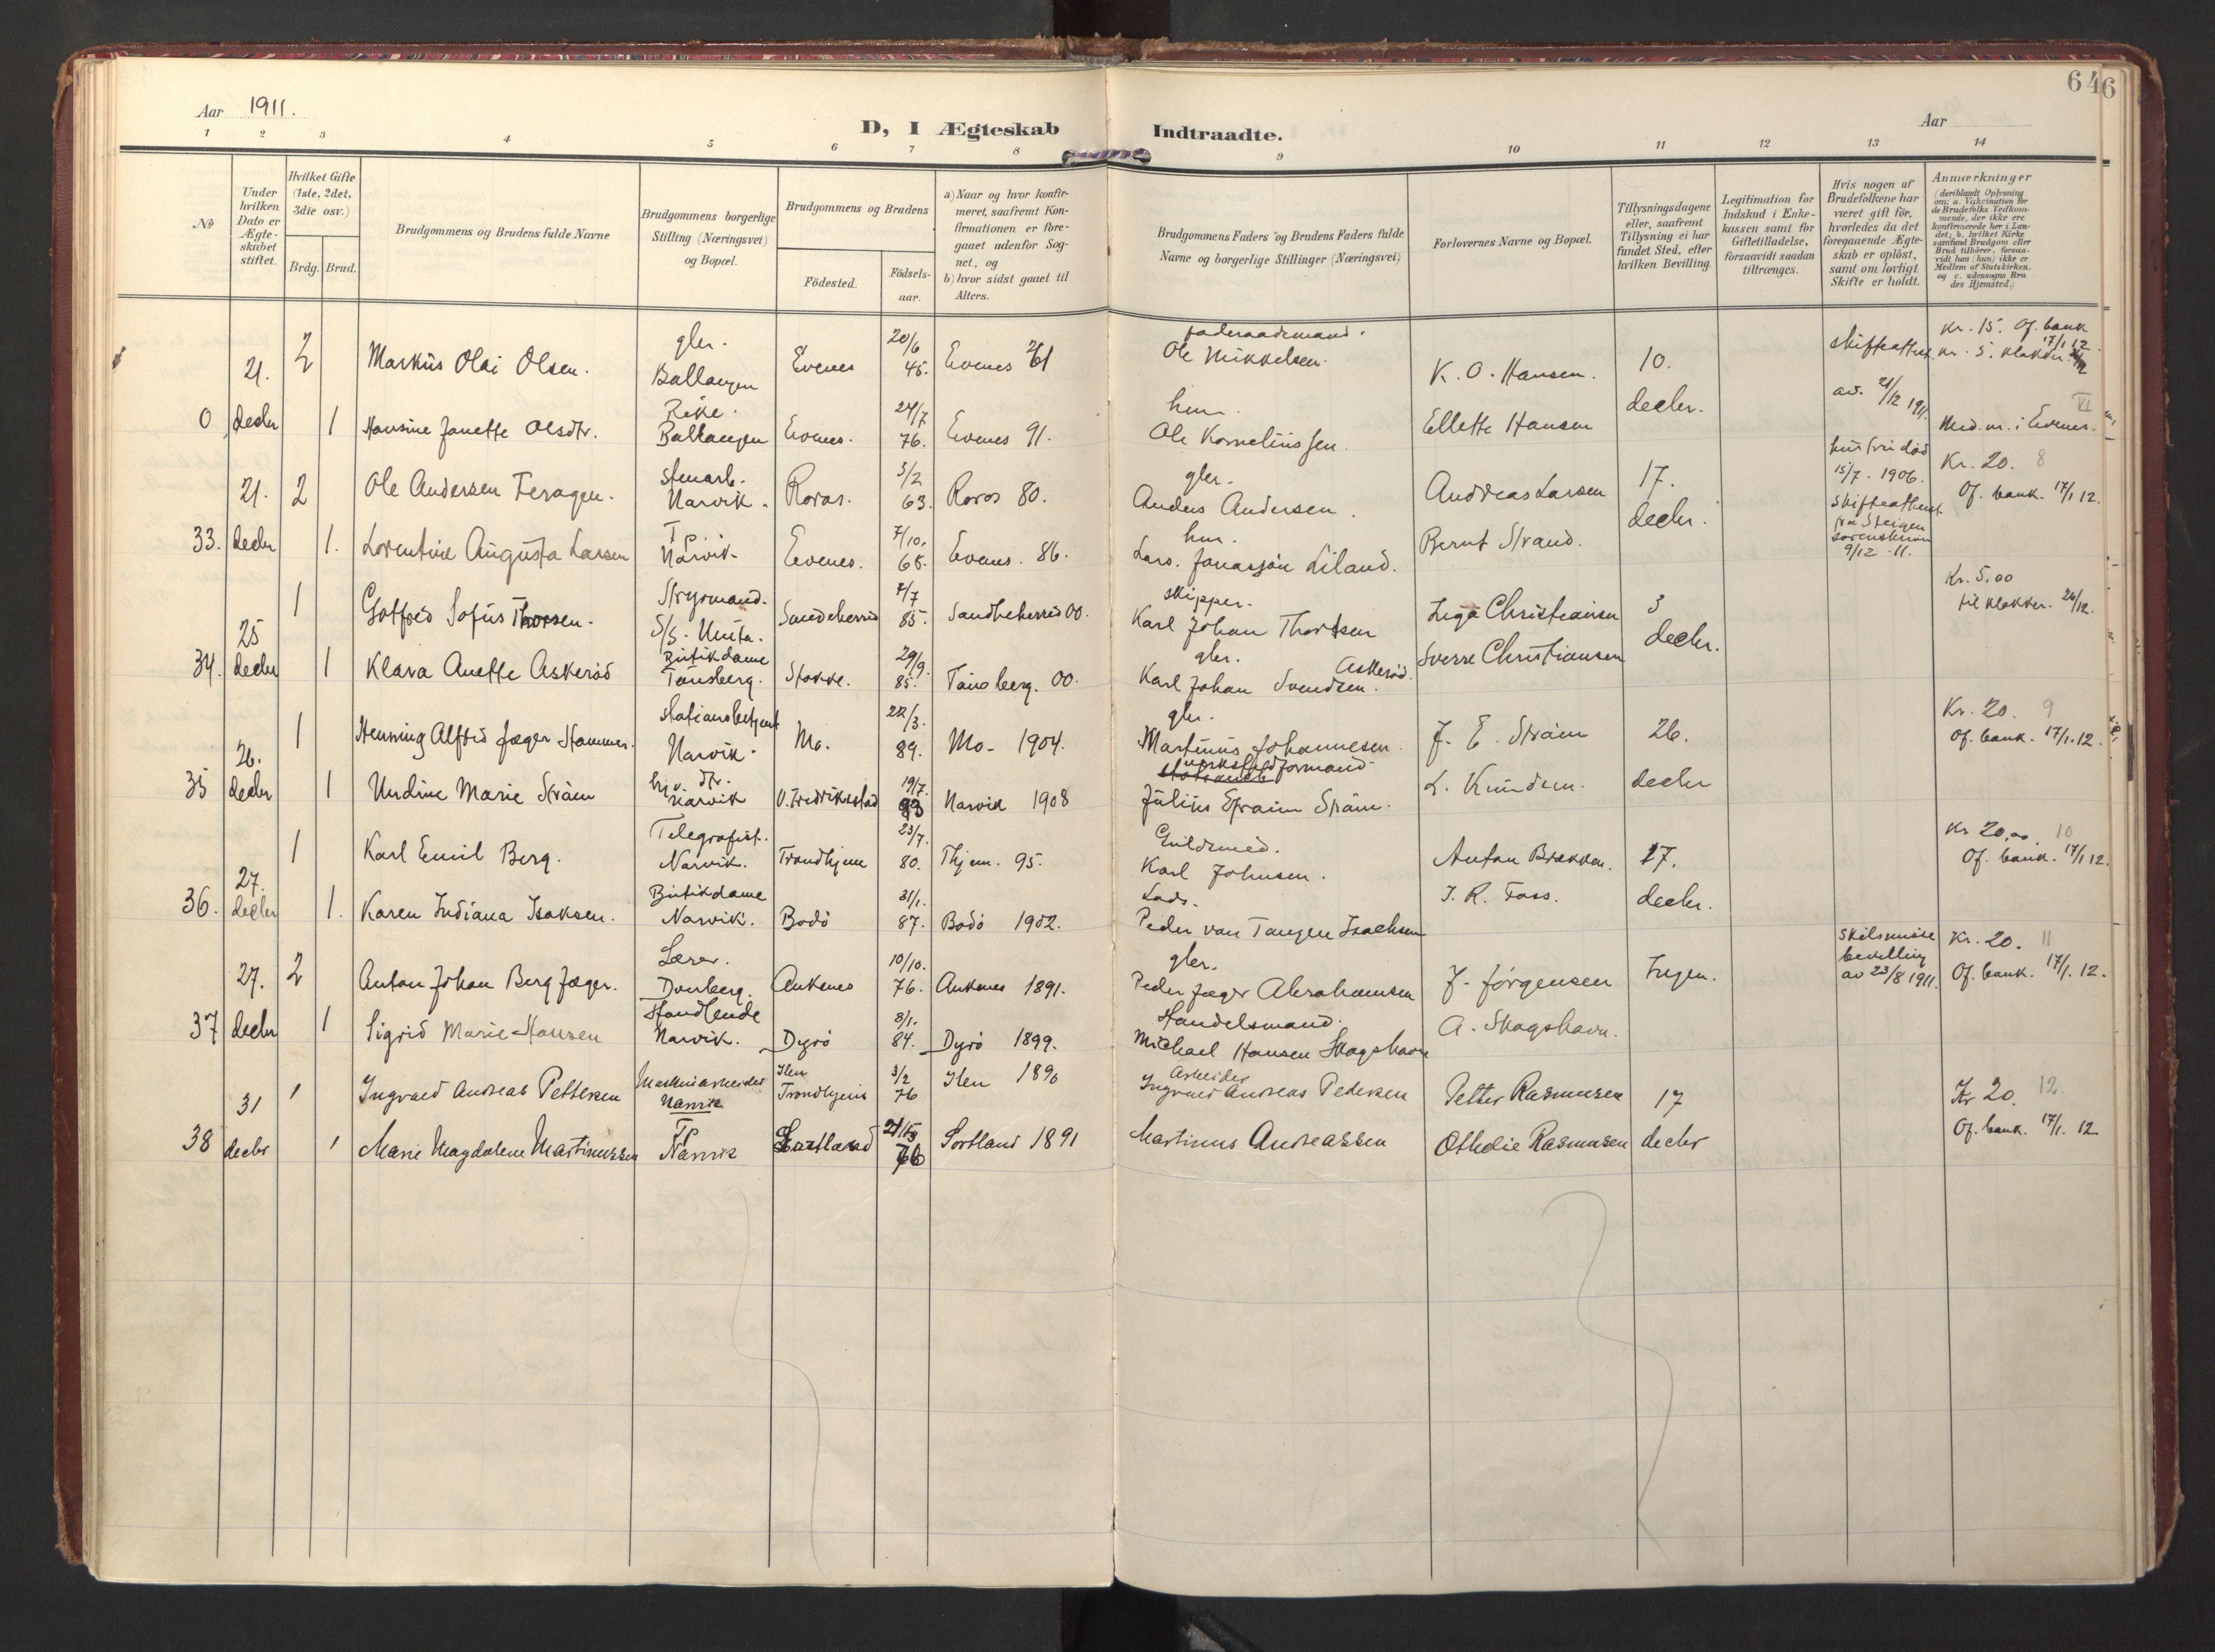 646
Aar 1911.
D, I Ægteskab Indtraadte.
Aar
1 2 3 4 5 6 7 8 9 10 11 12 13 14
№
Under hvilken Dato er Ægteskabet stiftet.
Hvilket Gifte (1ste, 2det, 3die osv.)
Brdg. Brud.
Brudgommens og Brudens fulde Navne
Brudgommens borgerlige Stilling (Næringsvei) og Bopæl.
Brudgommens og Brudens
Födested. Födselsaar.
a) Naar og hvor konfirmeret, saafremt Konfirmationen er foregaaet udenfor Sognet, og
b) hvor sidst gaaet til Alters.
Brudgommens Faders og Brudens Faders fulde Navne og borgerlige Stillinger (Næringsvei)
Forlovernes Navne og Bopæl.
Tillysningsdagene eller, saafremt Tillysning ei har fundet Sted, efter hvilken Bevilling.
Legitimation for Indskud i Enkekassen samt for Giftetilladelse, forsaavidt saadan tiltrænges.
Hvis nogen af Brudefolkene har været gift för, hvorledes da det foregaaende Ægteskab er oplöst, samt om lovligt Skifte er holdt.
Anmærkninger (deriblandt Oplysning om: a. Vakcination for de Brudefolks Vedkommende, der ikke ere konfirmerede her i Landet; b. hvilket Kirkesamfund Brudgom eller Brud tilhörer, forsaavidt han (hun) ikke er Medlem af Statskirken, og c. udensogns Brudes Hjemsted.)
21. 2 Markus Olai Olsen. gler. Ballangen Evenes 20/6 45. Evenes 61 Ole Mikkelsen. K. O. Hansen. 10. Kr. 15. Of. bank 17/1 12.
0 decbr 1 Hansine Janette Olsdtr. Ballangen Evenes. 24/7 76. Evenes 91. hm. Ole Korneliussen. Ellette Hansen decbr. av. 21/12 1911. Med. nr. i Evenes. VI
21. 2 Ole Andersen Feragen. stenarb. Narvik. Røros. 5/2 63. Røros 80. gler. Anders Andersen. Andreas Larsen 17. hustru död 15/7. 1906. Kr. 20. 8 Of. bank. 17/1 12.
33. decbr 1. Lorentine Augusta Larsen Narvik. Evenes. 7/10. 68. Evenes. 86. hm. Lars. Jonassøn Liland. Bernt Strand. decbr. skifteattest fra Steigen 9/12. 11.
1 Gotfred Sofus Thorsen. Styrmand. S/S. Unita. 7/7 85. 00. skipper. Karl Johan Thorsen Christiansen 3 Kr. 5.00 til klokker. 26/12.
34. 25 decbr 1 Klara Anette Askeröd Butikdame Tönsberg. Stokke. 29/9. 85. Tönsberg. 00. gler. Karl Johan Svendsen Askeröd. Sverre Christiansen decbr.
1 Henning Alfred Jæger Hammer. stationsbetjent Narvik. Mo. 22/3. 89. Mo. 1904. gler. Martinus Johannesen. J. E. Ström 26. Kr. 20. 9 Of. bank. 17/1. 12.
35 26. decbr 1 Undine Marie Ström Narvik V. Fredrikstad 19/7. 93 Narvik 1908 verkstedformand Julius Efraim Ström. L. Knudsen. decbr
1 Karl Emil Berg. Telegrafist. Narvik. Trondhjem 23/7. 80. Thjem. 95. Guldsmed. Karl Johnsen. Anton Brækken. 17. Kr 20,00 10 Of. bank. 17/1 12.
36. 27. decbr 1. Karen Indiana Isaksen. Butikdame Narvik. Bodö 31/1. 87. Bodö 1902. Lods. Peder van Tangen Isachsen decbr.
27. 2 Anton Johan Berg Jæger. Lærer. Ankenes 10/10. 76. Ankenes 1891. gler. Peder Jæger Abrahamsen J. Jörgensen Ingen. skilsmisse bevilling av 23/8 1911. Kr. 20. 11 Of. bank. 17/1. 12.
37 decbr 1 Sigrid Marie Hansen Handlende Narvik. Dyrö 8/1. 84. Dyrö 1899. Handelsmand. Michael Hansen Skogshavn A. Skogshavn.
31 1 Ingvald Andreas Pettersen Maskinarbeider Narvik Ilen Trondhjem 3/2 76 Ilen 1890 Arbeider Ingvald Andreas Pedersen Petter Rasmusen 17 Kr 20. 12. Of. bank. 17/1. 12
38 decbr 1 Marie Magdalene Martinussen Narvik Sortland 76 Sortland 1891 Martinus Andreassen Othelie Rasmusen decbr